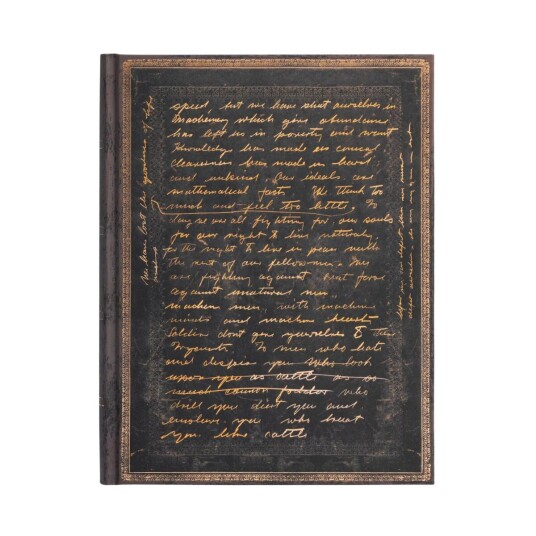 speed, but we have shut ourselves in
machinery which gives abundance
has left us in poverty and want
Knowledge has made us cynical
cleverness has made us hard
and unkind. Our ideals are
mathematical facts. We think to
much and feel too little. To
day we are all fighting for our souls
for our right to live naturally,
for the right to live in peace with
the rest of our fellowmen. Men
are fighting against
against unatural men
machine men, with machine
minds and machine hearts
Soldiers dont give yourselves to these
To men who hate
and despise you who look
upon you as cattle as so
much cannon fodder who
drill you diet you and
enslave you who treat
you like cattle
We have lost the